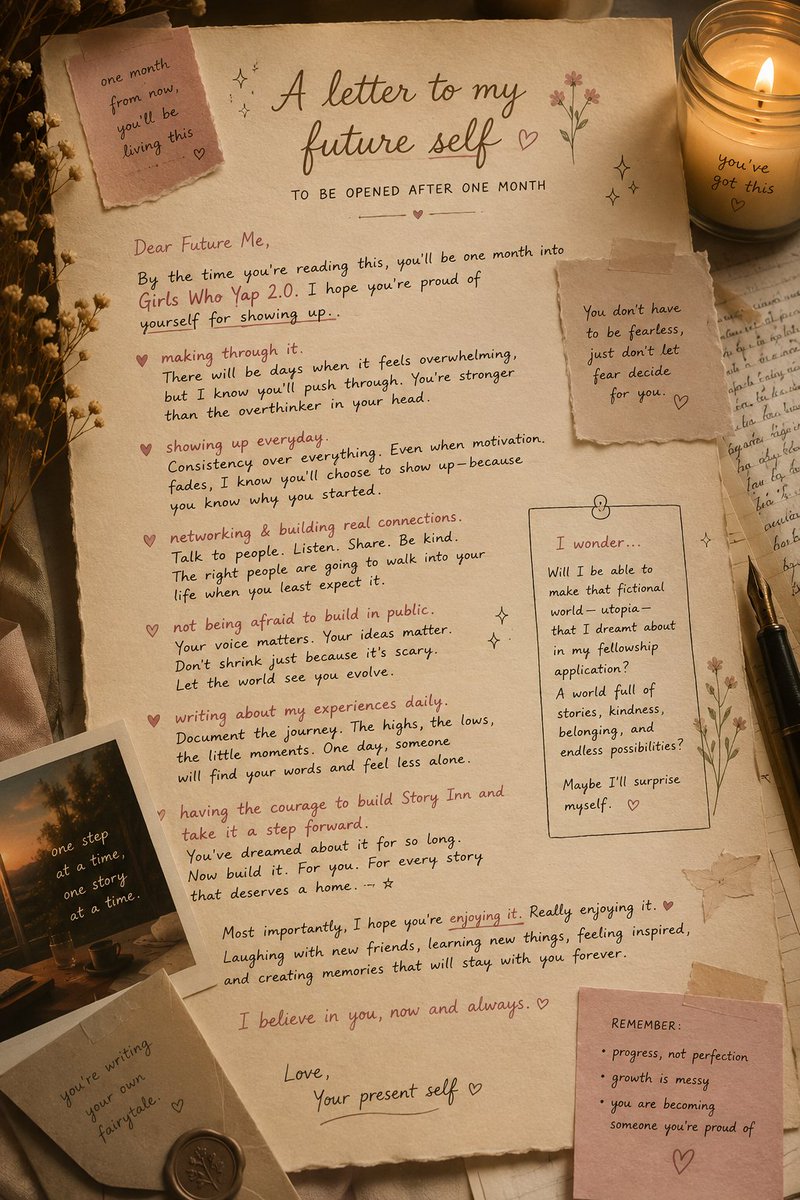 one month
from now,
you'll be
living this
A letter to my
future self
TO BE OPENED AFTER ONE MONTH
you've
got this
Dear Future Me,
By the time you're reading this, you'll be one month into
Girls Who Yap 2.0. I hope you're proud of
yourself for showing up..
You don't have
to be fearless,
just don't let
fear decide
for you.
making through it.
There will be days when it feels overwhelming,
but I know you'll push through. You're stronger
than the overthinker in your head.
showing up everyday.
Consistency over everything. Even when motivation.
fades, I know you'll choose to show up—because
you know why you started.
networking & building real connections.
Talk to people. Listen. Share. Be kind.
The right people are going to walk into your
life when you least expect it.
not being afraid to build in public.
Your voice matters. Your ideas matter.
Don't shrink just because it's scary.
Let the world see you evolve.
writing about my experiences daily.
Document the journey. The highs, the lows,
the little moments. One day, someone
will find your words and feel less alone.
having the courage to build Story Inn and
take it a step forward.
You've dreamed about it for so long.
Now build it. For you. For every story
that deserves a home. -- ☆
I wonder...
Will I be able to
make that fictional
world— utopia—
that I dreamt about
in my fellowship
application?
A world full of
stories, kindness,
belonging, and
endless possibilities?
Maybe I'll surprise
myself.
one step
at a time,
one story
at a time.
Most importantly, I hope you're enjoying it. Really enjoying it.
Laughing with new friends, learning new things, feeling inspired,
and creating memories that will stay with you forever.
I believe in you, now and always.
Love,
Your present self
you're writing
your own
fairytale.
REMEMBER:
• progress, not perfection
• growth is messy
• you are becoming
someone you're proud of